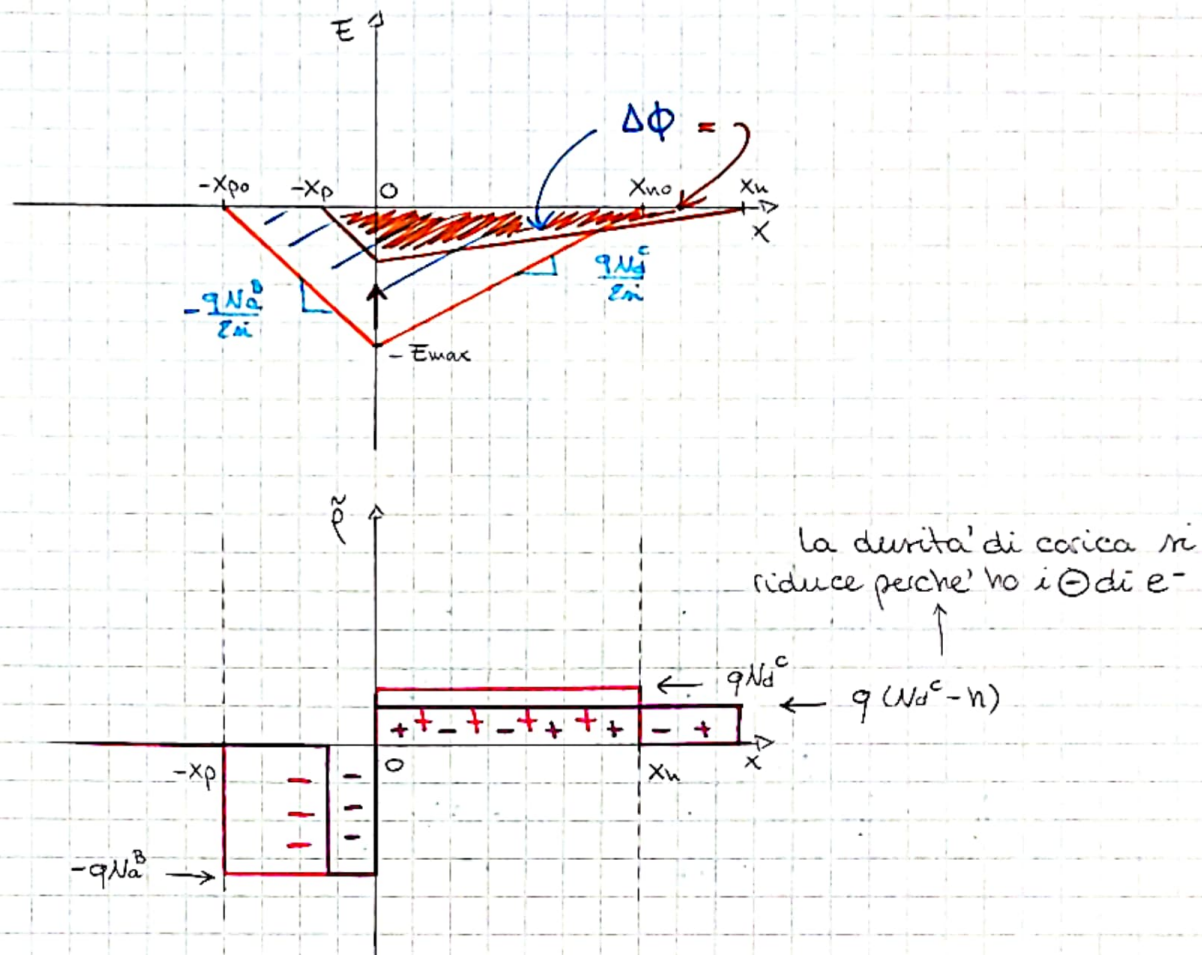 E
Δϕ =
-xpo -xp 0 xno xn
x
-qNa^B/εsi
qNd^C/εsi
-Emax
ρ̃
la densità' di carica si
riduce perche' ho i ⊖ di e-
← qNd^C
← q (Nd^C - n)
+ + - + - + + + + - +
-xp 0 xn x
- -
- -
- -
-qNa^B →